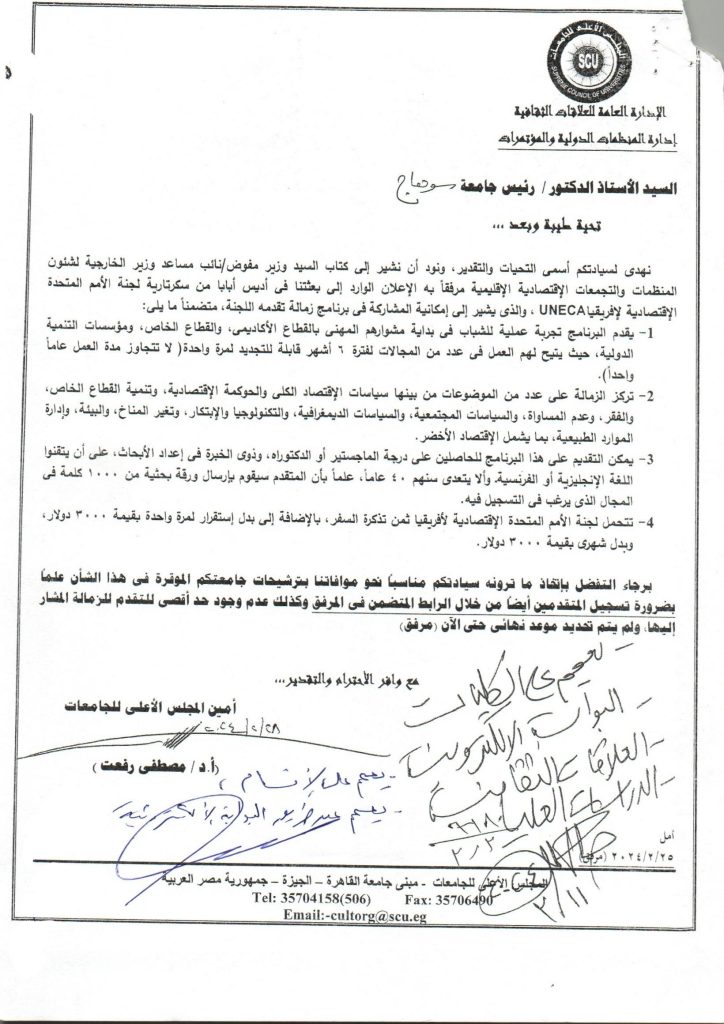 المجلس الأعلى للجامعات
SCU
SUPREME COUNCIL OF UNIVERSITIES
الإدارة العامة للعلاقات الثقافية
إدارة المنظمات الدولية والمؤتمرات
السيد الأستاذ الدكتور/ رئيس جامعة سوهاج
تحية طيبة وبعد ...
نهدى لسيادتكم أسمى التحيات والتقدير، ونود أن نشير إلى كتاب السيد وزير مفوض/نائب مساعد وزير الخارجية لشئون
المنظمات والتجمعات الإقتصادية الإقليمية مرفقاً به الإعلان الوارد إلى بعثتنا فى أديس أبابا من سكرتارية لجنة الأمم المتحدة
الإقتصادية لإفريقيا UNECA ، والذى يشير إلى إمكانية المشاركة فى برنامج زمالة تقدمه اللجنة، متضمناً ما يلى:
1- يقدم البرنامج تجربة عملية للشباب فى بداية مشوارهم المهنى بالقطاع الأكاديمى، والقطاع الخاص، ومؤسسات التنمية
الدولية، حيث يتيح لهم العمل فى عدد من المجالات لفترة ٦ أشهر قابلة للتجديد لمرة واحدة( لا تتجاوز مدة العمل عاماً
واحداً).
2- تركز الزمالة على عدد من الموضوعات من بينها سياسات الإقتصاد الكلى والحوكمة الإقتصادية، وتنمية القطاع الخاص،
والفقر، وعدم المساواة، والسياسات المجتمعية، والسياسات الديمغرافية، والتكنولوجيا والإبتكار، وتغير المناخ، والبيئة، وإدارة
الموارد الطبيعية، بما يشمل الإقتصاد الأخضر.
3- يمكن التقديم على هذا البرنامج للحاصلين على درجة الماجستير أو الدكتوراه، وذوى الخبرة فى إعداد الأبحاث، على أن يتقنوا
اللغة الإنجليزية أو الفرنسية، وألا يتعدى سنهم ٤٠ عاماً، علماً بأن المتقدم سيقوم بإرسال ورقة بحثية من ١٠٠٠ كلمة فى
المجال الذى يرغب فى التسجيل فيه.
4- تتحمل لجنة الأمم المتحدة الإقتصادية لأفريقيا ثمن تذكرة السفر، بالإضافة إلى بدل إستقرار لمرة واحدة بقيمة ٣٠٠٠ دولار،
وبدل شهرى بقيمة ٣٠٠٠ دولار.
برجاء التفضل بإتخاذ ما ترونه سيادتكم مناسباً نحو موافاتنا بترشيحات جامعتكم الموقرة فى هذا الشأن علماً
بضرورة تسجيل المتقدمين أيضاً من خلال الرابط المتضمن فى المرفق وكذلك عدم وجود حد أقصى للتقدم للزمالة المشار
إليها، ولم يتم تحديد موعد نهائى حتى الآن (مرفق)
مع وافر الأحترام والتقدير...
أمين المجلس الأعلى للجامعات
٢٠٢٤/٢/٢٨
(أ.د/ مصطفى رفعت)
- تعميم على الكليات
- البوابة الإلكترونية
- العلاقات الثقافية
- الدراسات العليا
- يعمم على الأقسام
- يعمم عن طريق البوابة الالكترونية
أمل
٢٠٢٤/٢/٢٥ (مرفق)
المجلس الأعلى للجامعات - مبنى جامعة القاهرة – الجيزة – جمهورية مصر العربية
Tel: 35704158(506) Fax: 35706490
Email:-cultorg@scu.eg